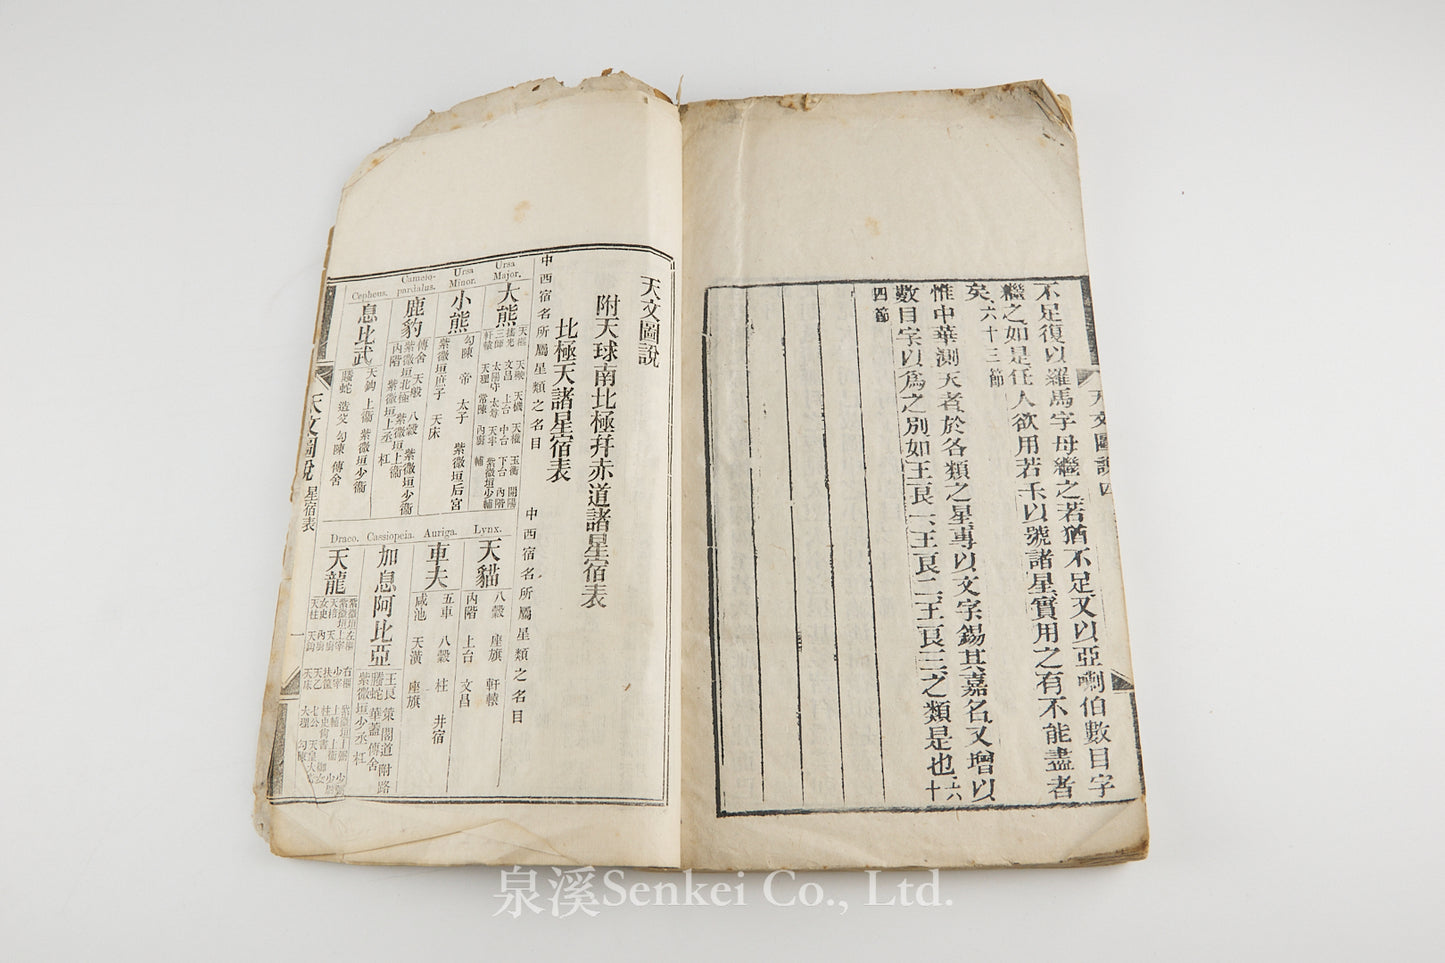 不足復以羅馬字母繼之若猶不足又以亞喇伯數目字
繼之如是任人欲用若干以號諸星實用之有不能盡者
矣六十三節
惟中華測天者於各類之星專以文字錫其嘉名又增以
數目字以爲之別如王良一王良二王良三之類是也六十
四節
天文圖說四
天文圖說
附天球南北極幷赤道諸星宿表
北極天諸星宿表
中西宿名所屬星類之名目
中西宿名所屬星類之名目
Ursa Major.
大熊
天樞 天璇 天璣 天權 玉衡 開陽
搖光 文昌 上台 中台 下台 內階
三師 太陽守 太尊 天牢 紫微垣少輔
軒轅 天理 常陳 內廚 輔
Ursa Minor.
小熊
勾陳 帝 太子 紫微垣后宮
紫微垣庶子 天床
Camelopardalus.
鹿豹
傳舍 天般 八穀 紫微垣少衞
紫微垣北極 紫微垣上衞
內階 紫微垣上丞 杠
Cepheus.
息比武
天鈎 上衞 紫微垣少衞
螣蛇 造父 勾陳 傳舍
Lynx.
天貓
八穀 座旗 軒轅
內階 上台 文昌
Auriga.
車夫
五車 八穀 柱 井宿
咸池 天潢 座旗
Cassiopeia.
加息阿比亞
王良 策 閣道 附路
螣蛇 華蓋 傳舍
紫微垣少丞 杠
Draco.
天龍
紫微垣左樞 右樞
紫微垣上宰 少宰
天棓 天廚 扶筐
女史 內廚 天乙
天柱 天鈎 天床
天文圖說 星宿表
一
泉溪Senkei Co., Ltd.